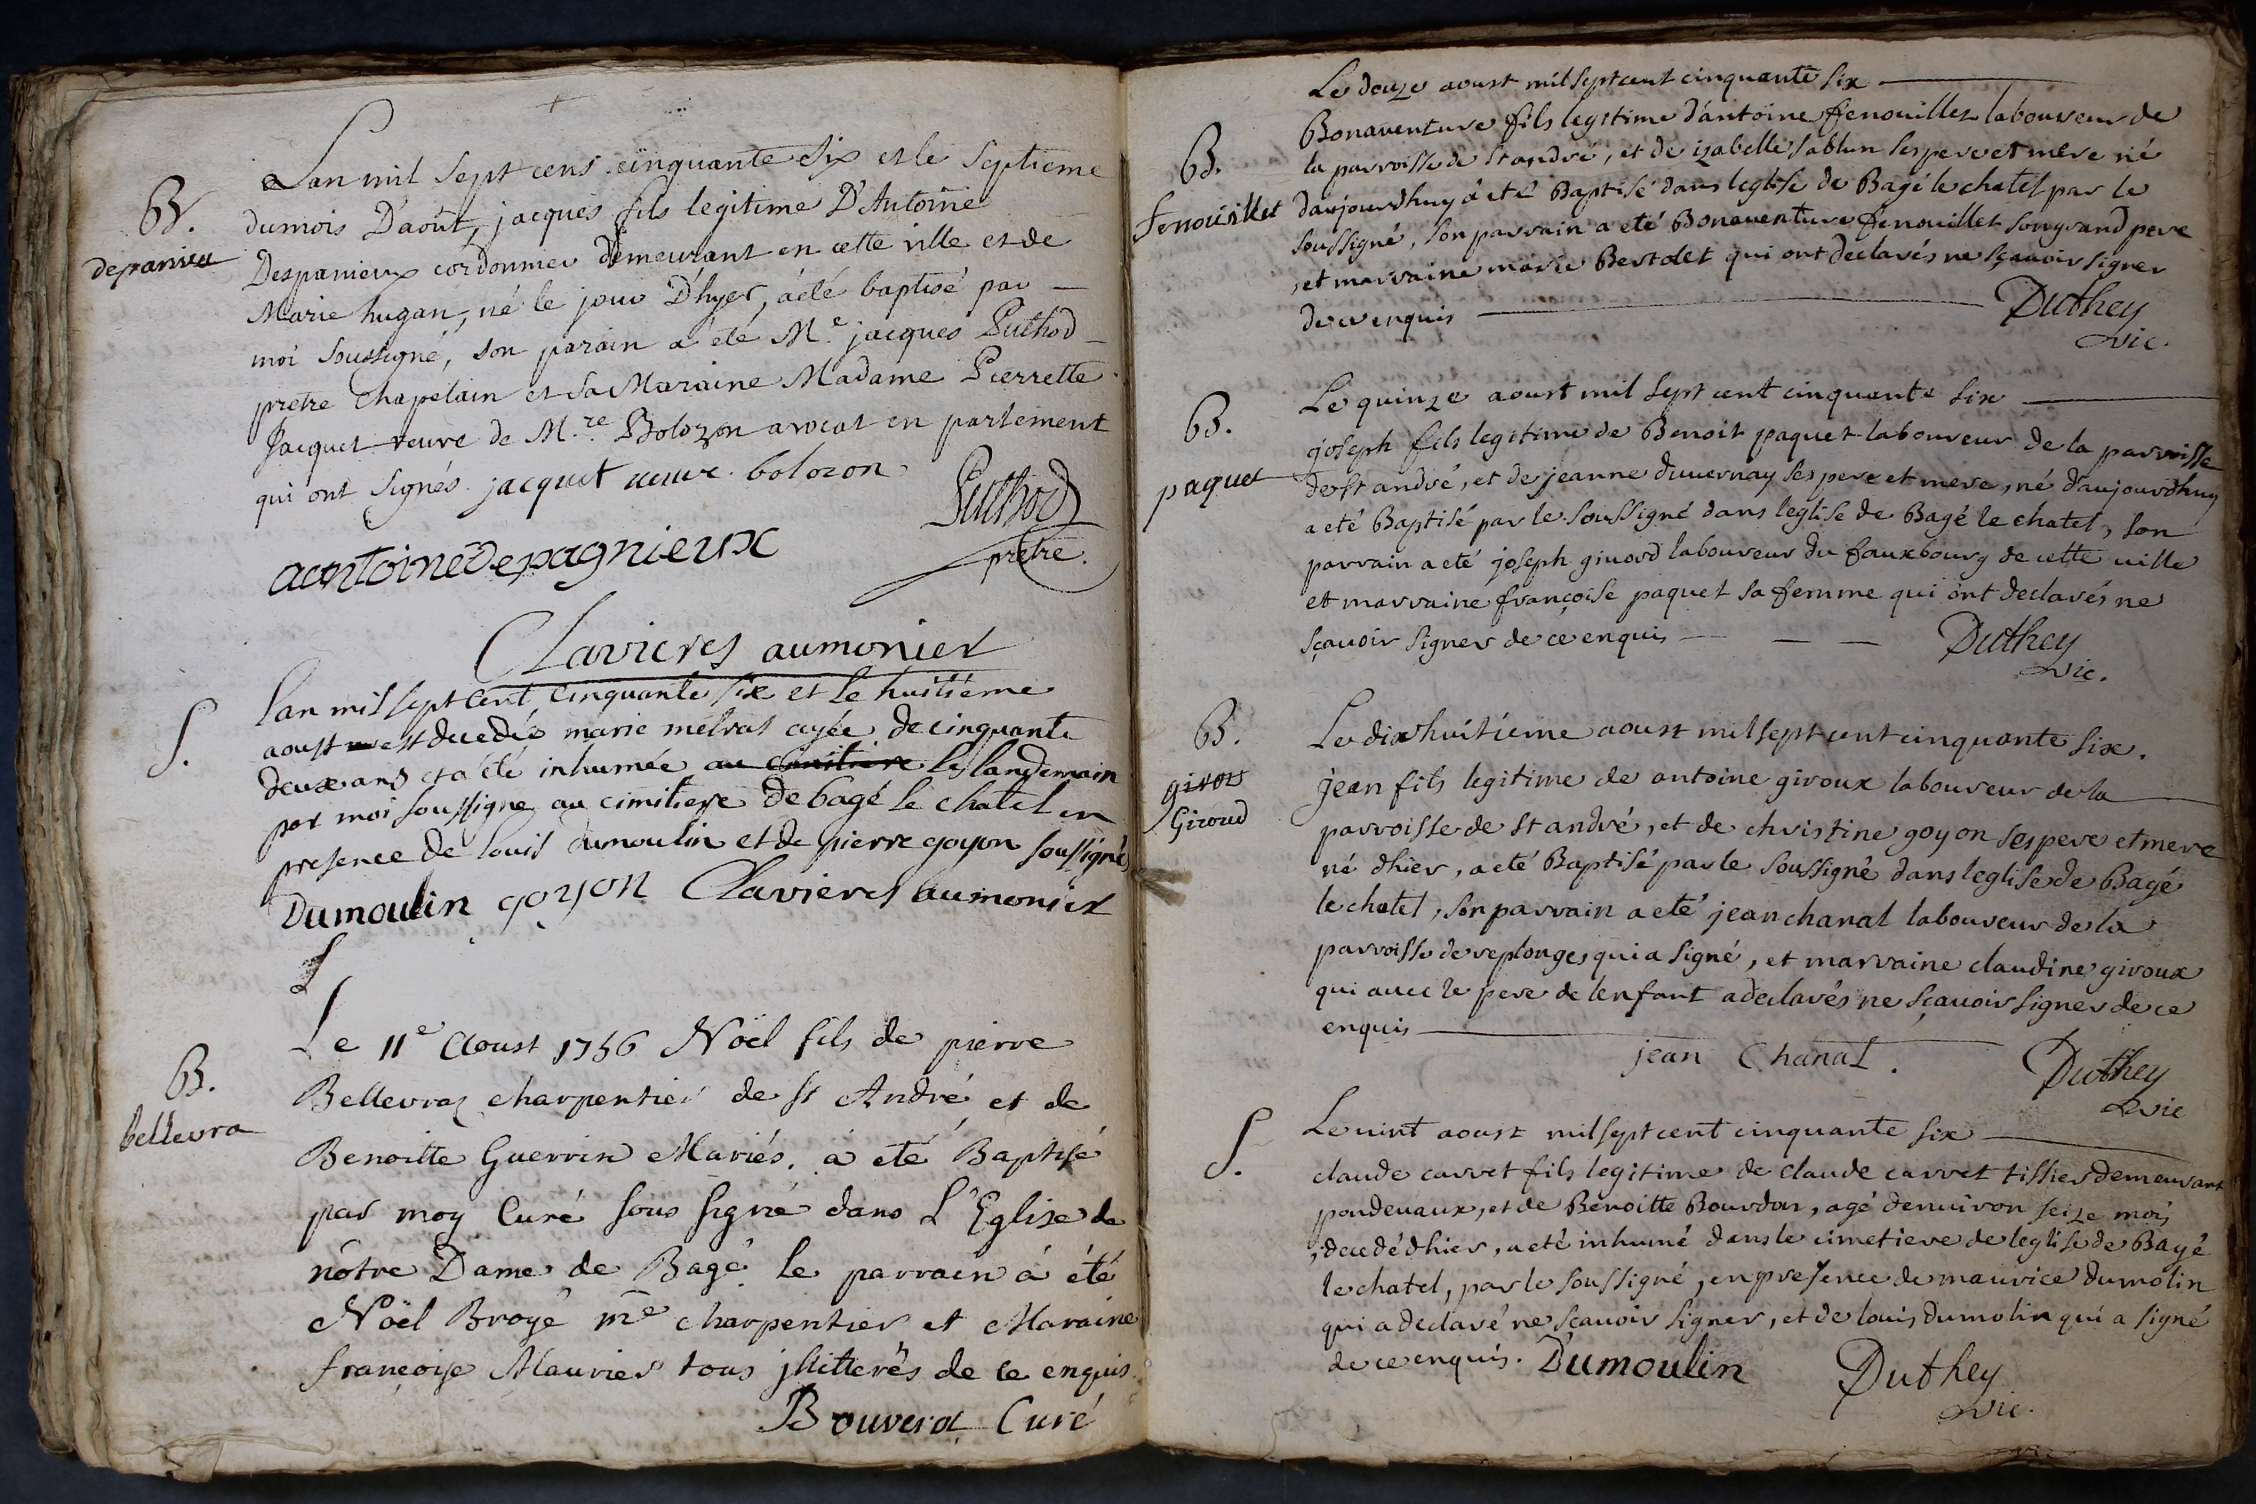 B.
depanieu
Lan mil sept cens cinquante Six et le Septieme
du mois D'août, jacques fils legitime D'Antoine
Despanieux cordonnier demeurant en cette ville et de
Marie hugan, né le jour D'hyer, à été baptisé par
moi Soussigné, son parain a été M.e jacques Puthod
pretre Chapelain et Sa Maraine Madame Pierrette
Jacquet veuve de M.re Bolozon avocat en parlement
qui ont signés. jacquet veuve bolozon
Puthod
pretre.
antoine depagnieux
Clavieres aumonier
S.
lan mil sept cent cinquante six et le huitiéme
aoust est decedée marie melras agée de cinquante
deux ans et a été inhumée au cimitiere le landemain
par moi soussigne au cimitiere de bagé le chatel en
presence de louis dumoulin et de pierre goyon soussignés
Dumoulin goyon Clavieres aumonier
B.
bellevra
Le 11e Aoust 1756 Noël fils de pierre
Bellevraz charpentier de st André et de
Benoitte Guerrin Mariés. à été Baptisé
par moy Curé sous signé dans L'Eglise de
nôtre Dame de Bagé le parrain à été
Noël Broyé me charpentier et Maraine
françoise Maurier tous jllitterés de ce enquis.
Bouverot Curé
Le douze aoust mil sept cent cinquante six
B.
fenouillet
Bonaventure fils legitime d'antoine fenouillet laboureur de
la parroisse de St andré, et de izabelle sablun ses pere et mere né
d'aujourdhuy à eté Baptisé dans leglise de Bagé le chatel par le
soussigné, son parrain a eté Bonaventure fenouillet son grand pere
, et marraine marie Bertolet qui ont declarés ne sçavoir signer
de ce enquis
Duthey
vic.
B.
paquet
Le quinze aoust mil sept cent cinquante six
joseph fils legitime de Benoit paquet laboureur de la parroisse
de st andré, et de jeanne duvernay ses pere et mere, né d'aujourdhuy
a eté Baptisé par le soussigné dans leglise de Bagé le chatel, son
parrain a eté joseph girord laboureur du fauxbourg de cette ville
et marraine françoise paquet sa femme qui ont declarés ne
sçavoir signer de ce enquis
Duthey
vic.
B.
giroux
Giroud
Le dix huitieme aoust mil sept cent cinquante six.
jean fils legitime de antoine giroux laboureur de la
parroisse de st andré, et de christine goyon ses pere et mere
né dhier, a eté Baptisé par le soussigné dans leglise de Bagé
le chatel, son parrain a eté jean chanal laboureur de la
parroisse de replonges qui a signé, et marraine claudine giroux
qui avec le pere de lenfant a declarés ne sçavoir signer de ce
enquis
jean Chanal.
Duthey
vic
S.
Le vint aoust mil sept cent cinquante six
claude carret fils legitime de claude carret tissier demeurant
pondevaux, et de Benoitte Bourdon, agé denviron seize mois
, decedé dhier, a eté inhumé dans le cimetiere de leglise de Bagé
le chatel, par le soussigné, en presence de maurice dumolin
qui a declaré ne sçavoir signer, et de louis dumolin qui a signé
de ce enquis. Dumoulin
Duthey
vic.